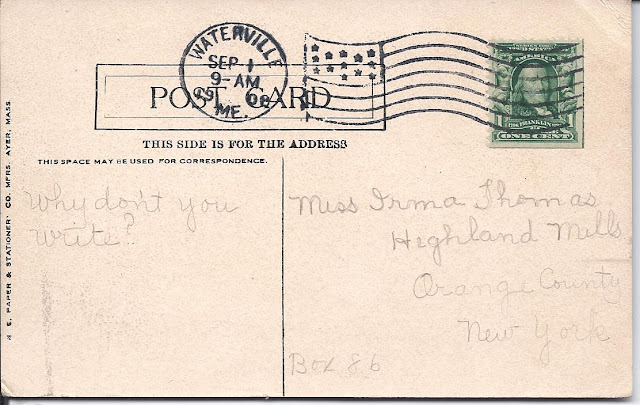 WATERVILLE
SEP 1
9-AM
1908
ME.
POST CARD
UNITED STATES OF
AMERICA
FRANKLIN
ONE CENT
THIS SIDE IS FOR THE ADDRESS
THIS SPACE MAY BE USED FOR CORRESPONDENCE.
Why don't you
write?
Miss Irma Thomas
Highland Mills
Orange County
New York
Box 86
N. E. PAPER & STATIONERY CO. MFRS. AYER, MASS.